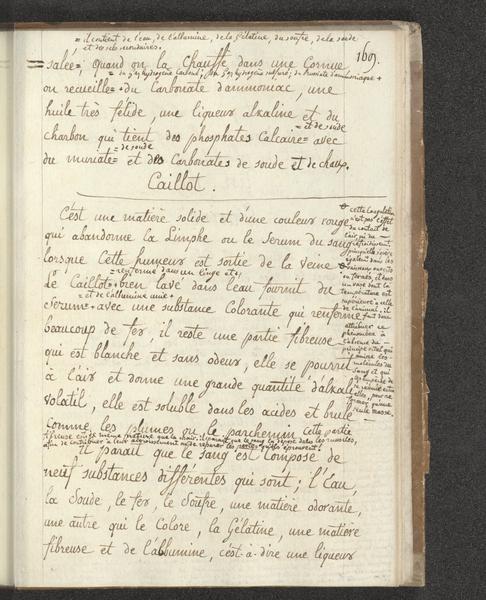 = il contient de l'eau, de l'albumine, de la Gélatine, du soufre, de la soude
et des sels muriatiques.
1609.
= salée =; quand on la chauffe dans une Cornue
= du gaz hydrogène Carboné; du gaz hydrogène sulfuré; du Prussiate d'ammoniaque +
on recueille + du Carbonate d'ammoniac, une
huile très fétide, une liqueur alkaline et du
= et de soude
charbon qui tient des phosphates Calcaire = avec
= de soude
du muriate = et des Carbonates de soude et de chaux.
Caillot.
C'est une matière solide et d'une couleur rouge
qui abandonne la Limphe ou le Serum du sang
lorsque Cette humeur est sortie de la veine
= renfermé dans un linge et
Le Caillot + bien lavé dans l'eau fournit du
= et de l'albumine unie +
Serum + avec une substance Colorante qui renferme
beaucoup de fer, il reste une partie fibreuse
qui est blanche et sans odeur, elle se pourrit
à l'air et donne une grande quantité d'alkali
volatil, elle est soluble dans les acides et brule
comme les plumes ou le parchemin Cette partie
fibreuse est la même matière que la chair, il parait que le sang la dépose dans les muscles,
afin de contribuer à leur accroissement ou de réparer les pertes qu'ils éprouvent.
Il parait que le sang est composé de
neuf substances différentes qui sont; l'Eau,
la Soude, le fer, le Soufre, une matière odorante,
une autre qui le Colore, la Gélatine, une matière
fibreuse et de l'albumine, c'est-à-dire une liqueur
cette Coagulation
n'est pas l'effet
du contact de
l'air, ni du
refroidissement,
puisqu'elle s'opère
également dans les
vaisseaux ouverts
ou fermés, et dans
un vase dont la
température est
supérieure à celle
de l'animal, il
faut donc
attribuer ce
phénomène à
l'absence du
principe vital qui
anime les
molécules du
sang et qui
les empêche de
se réunir entre
elles, pour ne
former qu'une
seule masse.